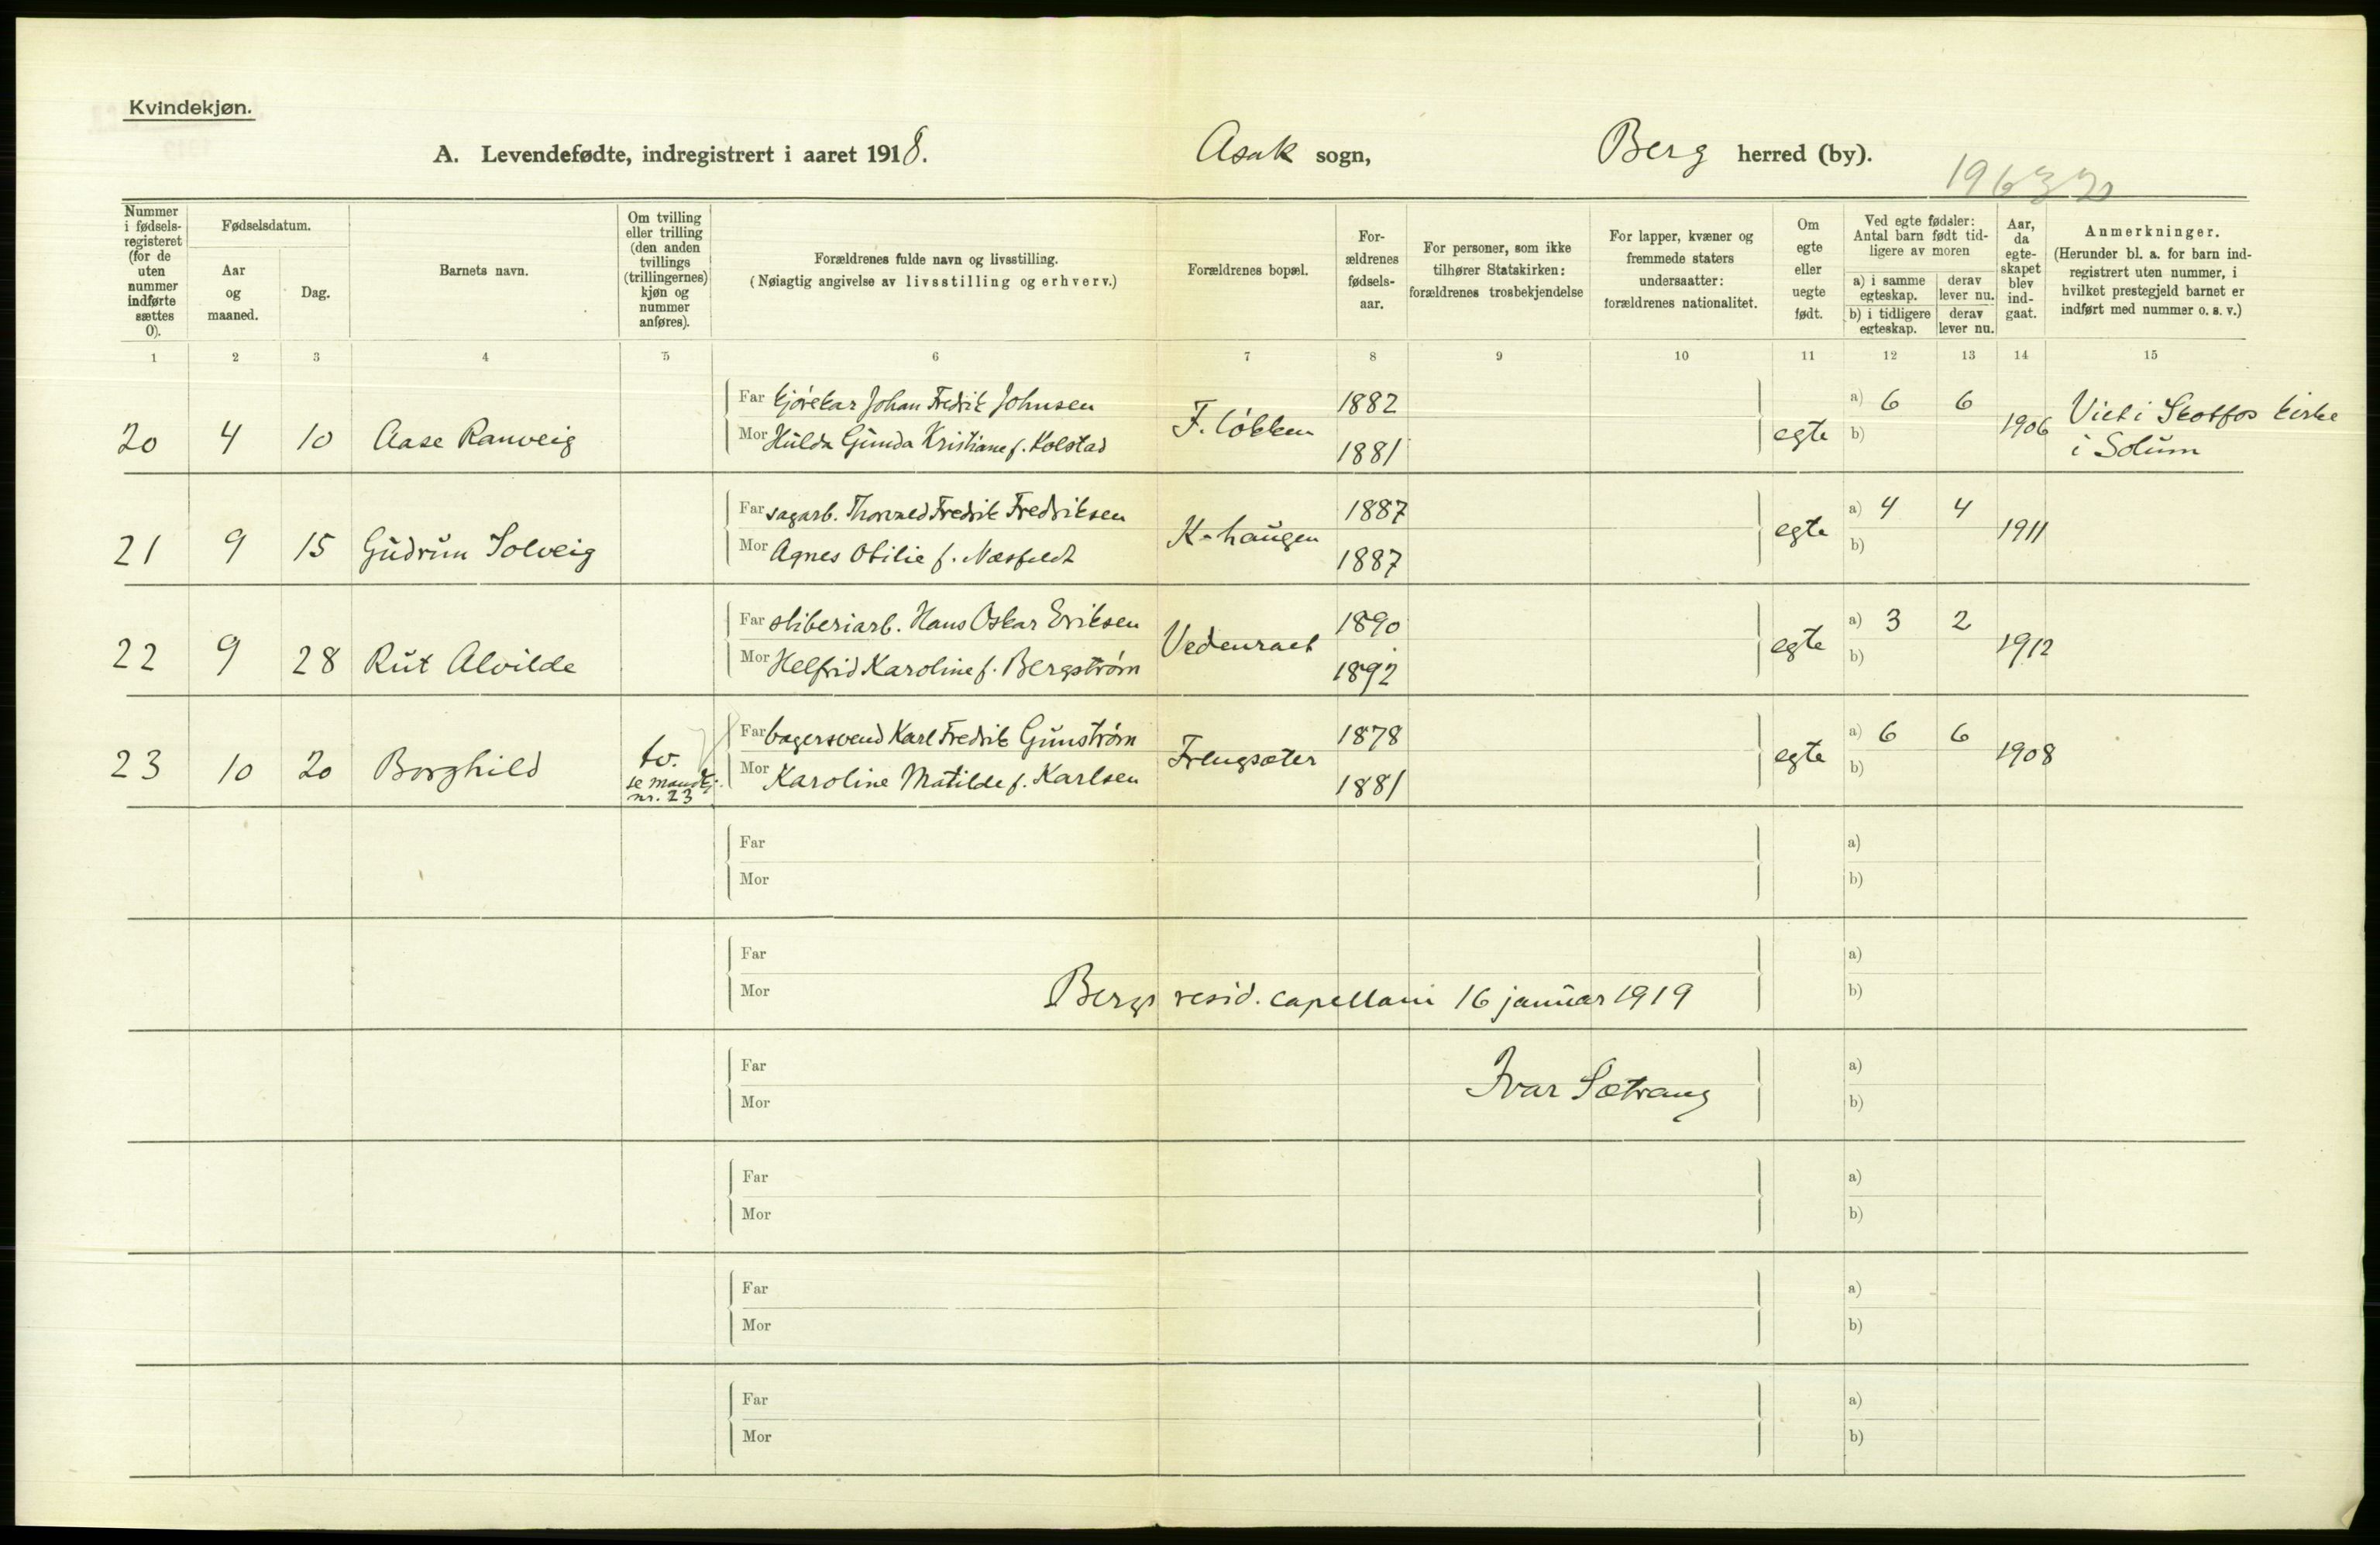 Kvindekjøn.
A. Levendefødte, indregistrert i aaret 1918. Asak sogn, Berg herred (by).
Nummer i fødselsregisteret (for de uten nummer indførte sættes 0).
Fødselsdatum.
Aar og maaned.
Dag.
Barnets navn.
Om tvilling eller trilling (den anden tvillings (trillingernes) kjøn og nummer anføres).
Forældrenes fulde navn og livsstilling.
(Nøiagtig angivelse av livsstilling og erhverv.)
Forældrenes bopæl.
Forældrenes fødselsaar.
For personer, som ikke tilhører Statskirken: forældrenes trosbekjendelse
For lapper, kvæner og fremmede staters undersaatter: forældrenes nationalitet.
Om egte eller uegte født.
Ved egte fødsler: Antal barn født tidligere av moren
a) i samme egteskap. derav lever nu.
b) i tidligere egteskap. derav lever nu.
Aar, da egteskapet blev indgaat.
Anmerkninger.
(Herunder bl. a. for barn indregistrert uten nummer, i hvilket prestegjeld barnet er indført med nummer o. s. v.)
1 2 3 4 5 6 7 8 9 10 11 12 13 14 15
Far kjørekar Johan Fredrik Johnsen 1882 a) 6 6 Viet i Skotfos kirke
20 4 10 Aase Ranveig Mor Hulda Gunda Kristiane f. Kolstad F. løkken 1881 egte b) 1906 i Solum
Far sagarb. Thorvald Fredrik Fredriksen 1887 a) 4 4
21 9 15 Gudrun Solveig Mor Agnes Otilie f. Næsfeldt K-haugen 1887 egte b) 1911
Far sliberiarb. Hans Oskar Eriksen 1890 a) 3 2
22 9 28 Rut Alvilde Mor Helfrid Karoline f. Bergstrøm Vedenraet 1892 egte b) 1912
Far bagersvend Karl Fredrik Gunstrøm 1878 a) 6 6
23 10 20 Borghild tv. se mandkj. nr. 23 Mor Karoline Matilde f. Karlsen Frengsæter 1881 egte b) 1908
Far a)
Mor b)
Far a)
Mor b)
Bergs resid. capellani 16 januar 1919
Far a)
Ivar Sætrang
Mor b)
Far a)
Mor b)
Far a)
Mor b)
Far a)
Mor b)